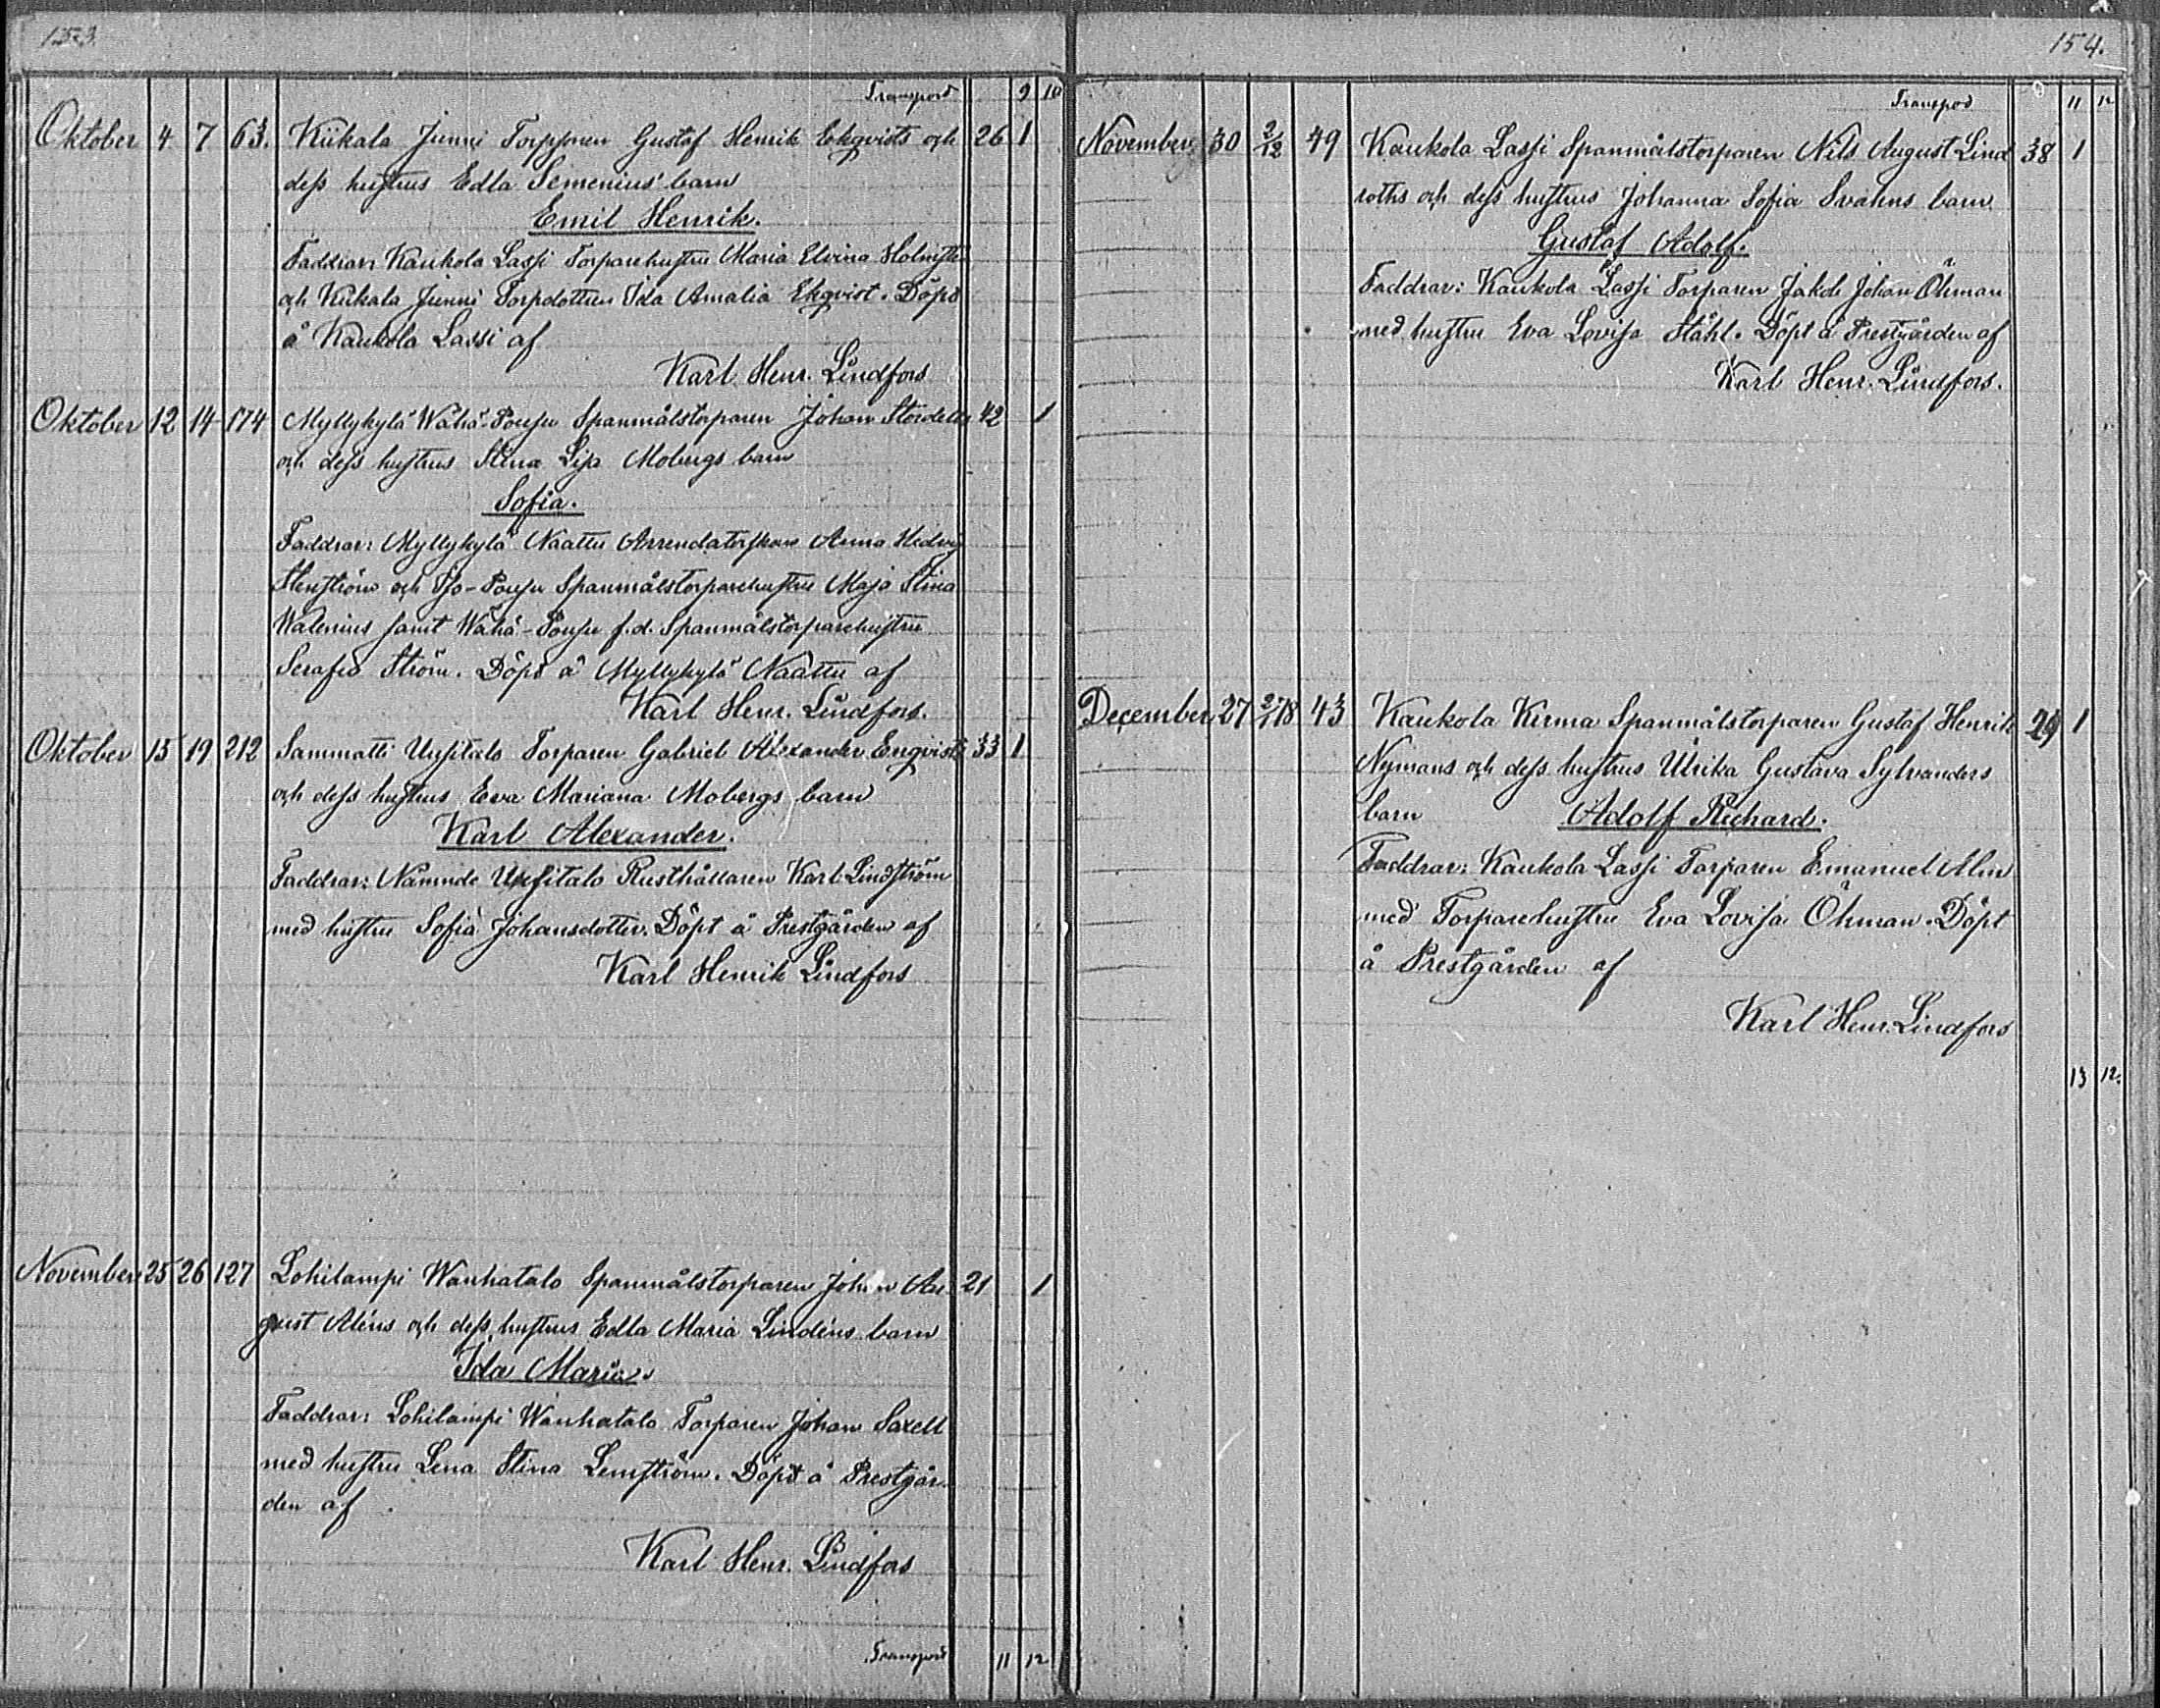 153.
Transport 9 10
Oktober 4 7 63. Kiikala Junni Torpparen Gustaf Henrik Ekqvists och 26 1
dess hustrus Edla Semenius' barn
Emil Henrik.
Faddrar: Kaukola Lassi Torparehustru Maria Elvira
och Kiikala Junni Torpdottren Ida Amalia Ekqvist. Döpt
å Kaukola Lassi af
Karl Henr. Lindfors
Oktober 12 14 174 Myllykylä Wähä-Pouju Spanmålstorparen Johan Stordells 42 1
och dess hustrus Stina Lisa Mobergs barn
Sofia.
Faddrar: Myllykylä Naattu Arrendatorskan Anna Hedvig
Stenström och Iso-Pouju Spanmålstorparehustru Maja Stina
Walenius samt Wähä-Pouju f.d. Spanmålstorparehustru
Serafia Ström. Döpt å Myllykylä Naattu af
Karl Henr. Lindfors.
Oktober 15 19 212 Sammatti Uusitalo Torparen Gabriel Alexander Enqvists 33 1
och dess hustrus Eva Mariana Mobergs barn
Karl Alexander.
Faddrar: Nämnde Uusitalo Rusthållaren Karl Lindström
med hustru Sofia Johansdotter. Döpt å Prestgården af
Karl Henrik Lindfors
November 25 26 127 Lohilampi Wanhatalo Spanmålstorparen Johan Au- 21 1
gust Aléns och dess hustrus Edla Maria Lindéns barn
Ida Maria.
Faddrar: Lohilampi Wanhatalo Torparen Johan Saxell
med hustru Lena Stina Lemström. Döpt å Prestgår-
den af
Karl Henr. Lindfors
Transport 11 12
154.
Transpod 11 12
November 30 2/12 49 Kaukola Lassi Spanmålstorparen Nils August Lind 38 1
roths och dess hustrus Johanna Sofia Svahns barn
Gustaf Adolf.
Faddrar: Kaukola Lassi Torparen Jakob Johan Öhman
med hustru Eva Lovisa Ståhl. Döpt å Prestgården af
Karl Henr. Lindfors.
December 27 2/1 78 43 Kaukola Kirma Spanmålstorparen Gustaf Henrik 29 1
Nymans och dess hustrus Ulrika Gustava Sylvanders
barn Adolf Richard.
Faddrar: Kaukola Lassi Torparen Emanuel Alm
med Torparehustru Eva Lovisa Öhman. Döpt
å Prestgården af
Karl Henr. Lindfors
13 12.